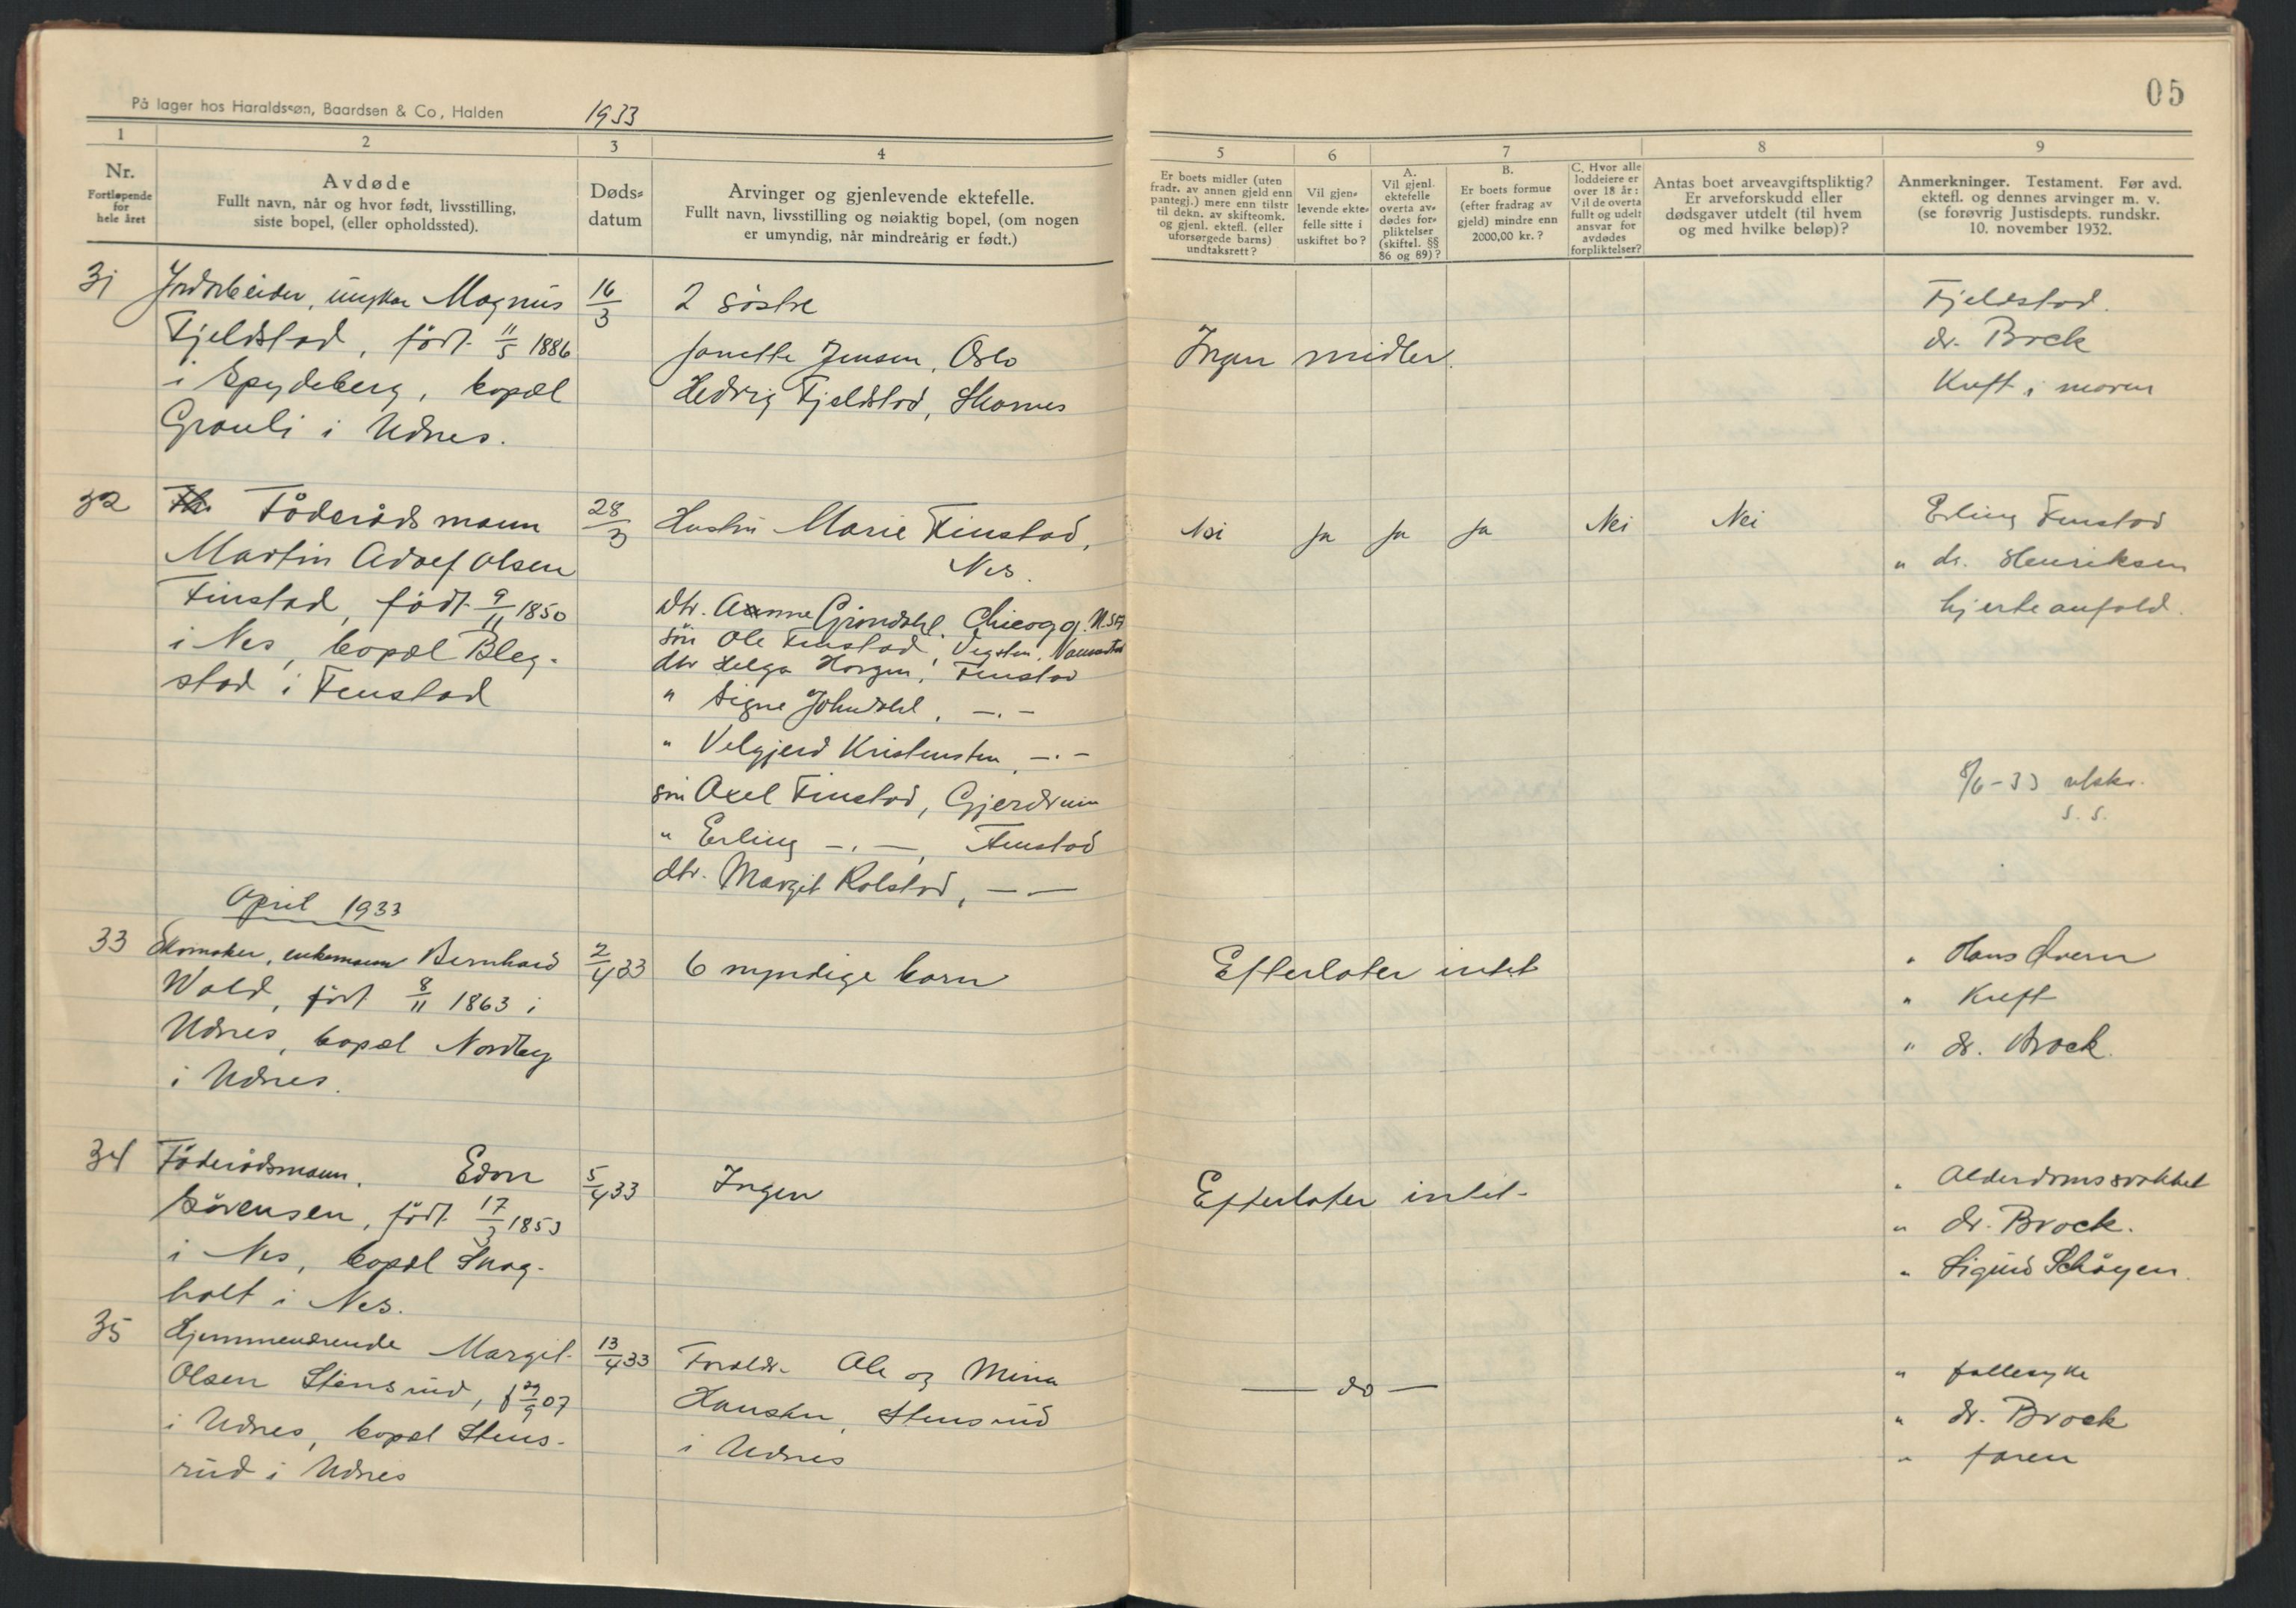 På lager hos Haraldssøn, Baardsen & Co, Halden
1933
05
1
2
3
4
5
6
7
8
9
Nr.
Fortløpende
for
hele året
Avdøde
Fullt navn, når og hvor født, livsstilling,
siste bopel, (eller opholdssted).
Døds=
datum
Arvinger og gjenlevende ektefelle.
Fullt navn, livsstilling og nøiaktig bopel, (om nogen
er umyndig, når mindreårig er født.)
Er boets midler (uten
fradr. av annen gjeld enn
pantegj.) mere enn tilstr
til dekn. av skifteomk.
og gjenl. ektefl. (eller
uforsørgede barns)
undtaksrett?
Vil gjen=
levende ekte=
felle sitte i
uskiftet bo?
A.
Vil gjenl.
ektefelle
overta av=
dødes for=
pliktelser
(skiftel. §§
86 og 89)?
B.
Er boets formue
(efter fradrag av
gjeld) mindre enn
2000,00 kr.?
C. Hvor alle
loddeiere er
over 18 år:
Vil de overta
fullt og udelt
ansvar for
avdødes
forpliktelser?
Antas boet arveavgiftspliktig?
Er arveforskudd eller
dødsgaver utdelt (til hvem
og med hvilke beløp)?
Anmerkninger. Testament. Før avd.
ektefl. og dennes arvinger m. v.
(se forøvrig Justisdepts. rundskr.
10. november 1932.
31
Jordarbeider, ungkar Magnus
Fjeldstad, født 11/5 1886
i Spydeberg, bopæl
Grauli i Udnes.
16/3
2 søstre
Janette Jensen, Oslo
Hedvig Fjeldstad, Skarnes
Ingen midler.
Fjeldstad.
dr. Brock
Kreft i maven
32
Føderådsmann
Martin Adolf Olsen
Finstad, født 9/11 1850
i Nes, bopæl Bleg-
stad i Fenstad
28/3
Hustru Marie Finstad,
Nes.
dtr. Anne Grøndahl, Chicago, U.S.A
søn Ole Finstad,
dtr Helga Horgen, Fenstad
" Signe Johndahl, -.-
" Velgjerd Kristensen, -.-
søn Axel Finstad, Gjerdrum
" Erling -.-, Fenstad
dtr. Margit Rolstad, - -
Nei
Ja
Ja
Ja
Nei
Nei
Erling Finstad
" dr. Henriksen
hjerteanfald.
8/6-33 utskr.
S. S.
April 1933
33
Skomaker, enkemann Bernhard
Wold, født 8/11 1863 i
Udnes, bopæl Nordby
i Udnes.
2/4 33
6 myndige barn
Efterlater intet
" Hans
" Kreft
" dr. Brock.
34
Føderådsmann, Edvn
Sørensen, født 17/3 1853
i Nes, bopæl Skog-
holt i Nes.
5/4 33
Ingen
Efterlater intet-
" Alderdomssvakhet
" dr. Brock.
" Sigurd Schøyen.
35
Hjemmeværende Margit
Olsen Stensrud, f 29/9 07
i Udnes, bopæl Stens-
rud i Udnes
13/4 33
Foreldr. Ole og Mina
Hansen, Stensrud
i Udnes
— do —
" fallesyke
" dr. Brock
" faren